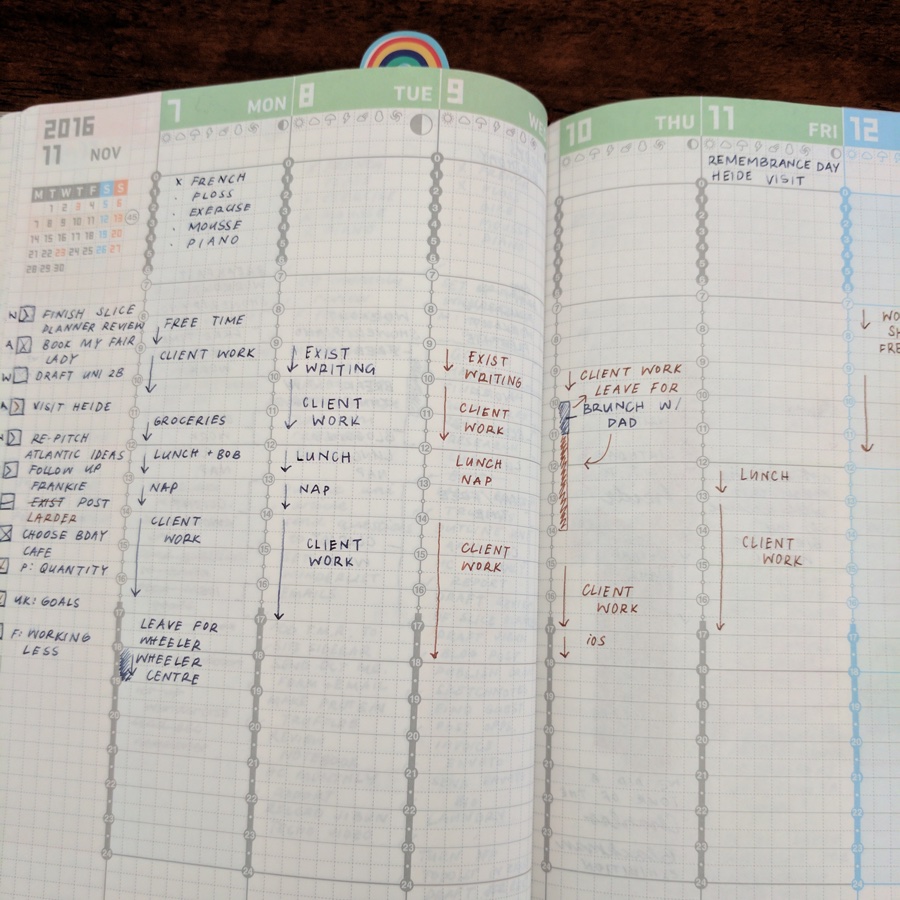 2016
11 NOV
M T W T F S S
1 2 3 4 5 6
7 8 9 10 11 12 13 45
14 15 16 17 18 19 20
21 22 23 24 25 26 27
28 29 30
FINISH SLICE
PLANNER REVIEW
BOOK MY FAIR
LADY
DRAFT UNI 2B
VISIT HEIDE
RE-PITCH
ATLANTIC IDEAS
FOLLOW UP
FRANKIE
EXIST POST
LARDER
CHOOSE BDAY
CAFE
P: QUANTITY
UK: GOALS
F: WORKING
LESS
7 MON
X FRENCH
· FLOSS
· EXERCISE
· MOUSSE
· PIANO
FREE TIME
CLIENT WORK
GROCERIES
LUNCH + BOB
NAP
CLIENT
WORK
LEAVE FOR
WHEELER
WHEELER
CENTRE
8 TUE
EXIST
WRITING
CLIENT
WORK
LUNCH
NAP
CLIENT
WORK
9 WE
EXIST
WRITING
CLIENT
WORK
LUNCH
NAP
CLIENT
WORK
10 THU
CLIENT WORK
LEAVE FOR
BRUNCH W/
DAD
CLIENT
WORK
iOS
11 FRI
REMEMBRANCE DAY
HEIDE VISIT
LUNCH
CLIENT
WORK
12
WO
SH
FRE